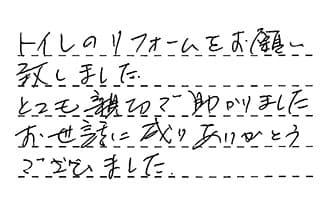 トイレのリフォームをお願い
致しました.
とても親切で助かりました
お世話に成りありがとう
ございました.